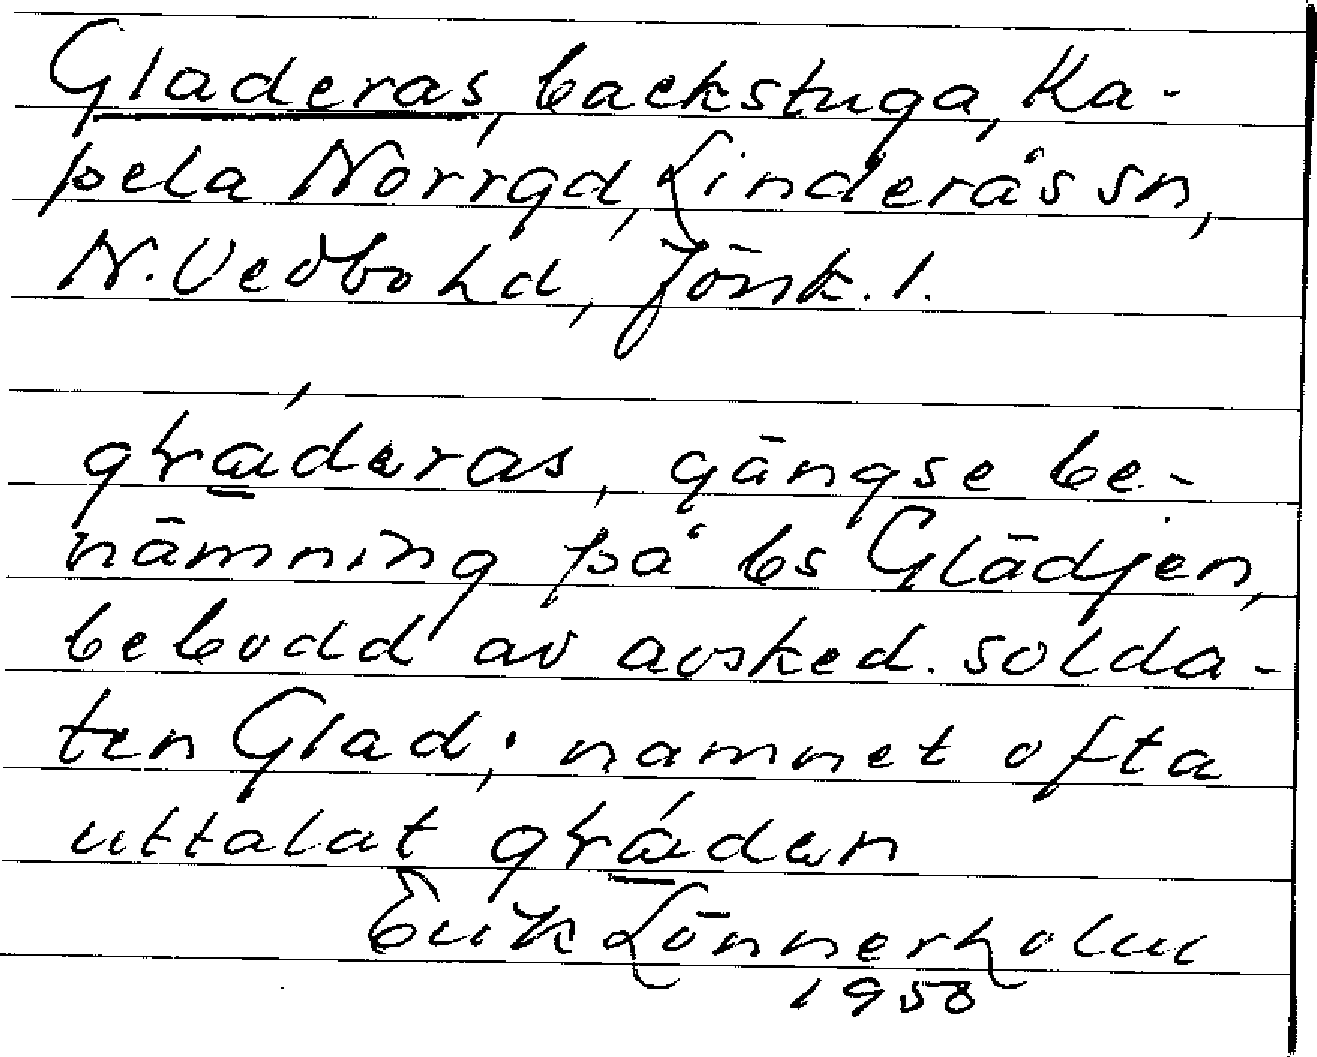 Gladeras, backstuga, Ka-
pela Norrgd, Linderås sn,
N. Vedbo hd, Jönk. l.
gɫáderas, gängse be-
nämning på bs Glädjen,
bebodd av avsked. solda-
ten Glad; namnet ofta
uttalat gɫáden
Erik Lönnerholm
1958